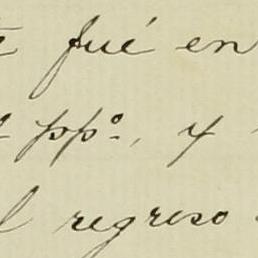 fué en
ppº., y
regreso